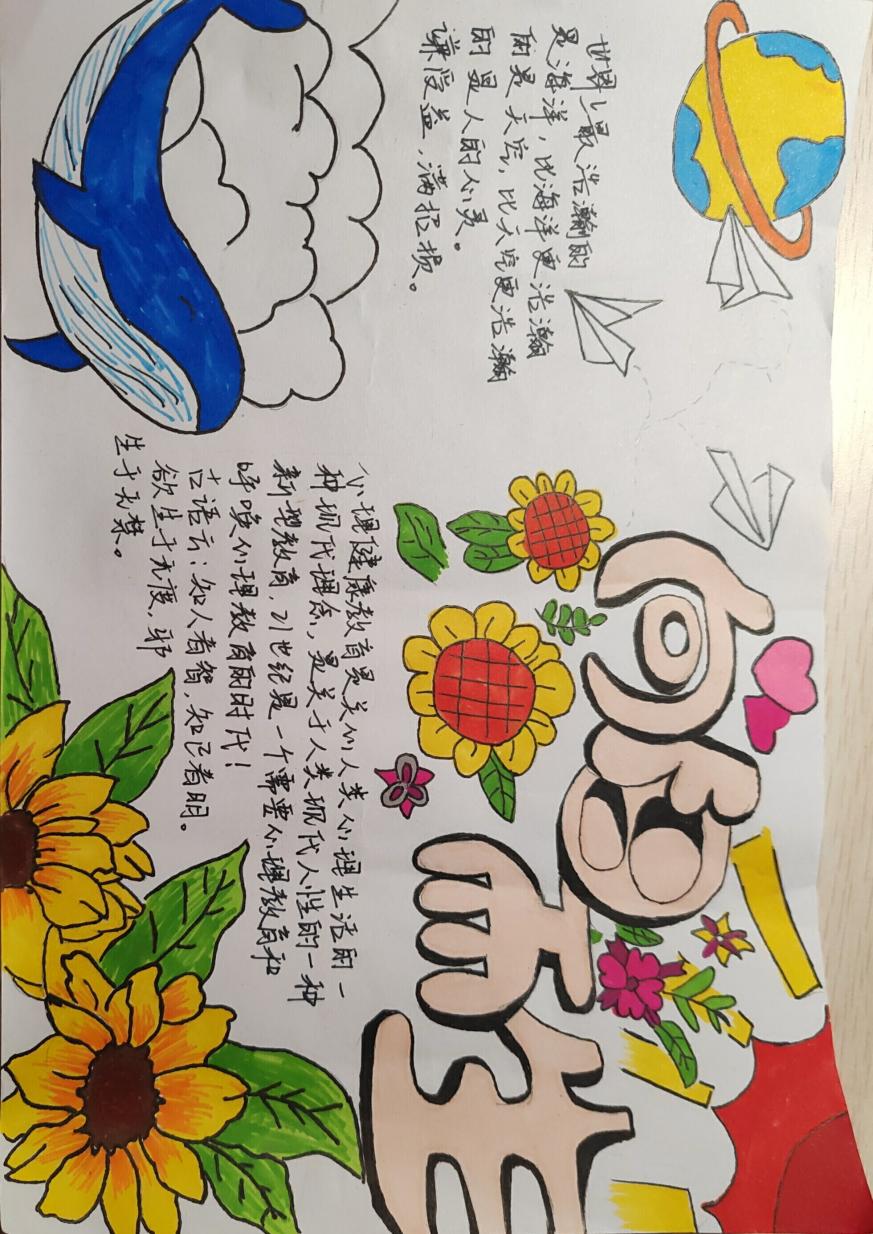 向阳而生
世界上最浩瀚的
是海洋，比海洋更浩瀚
的是天空，比天空更浩瀚
的是人的心灵。
谦受益，满招损。
心理健康教育是关心人类心理生活的一
种现代理念，是关于人类现代人性的一种
新型教育，21世纪是一个需要心理教育和
呼唤心理教育的时代！
古语云：知人者智，知己者明。
欲生于无度，邪
生于无禁。